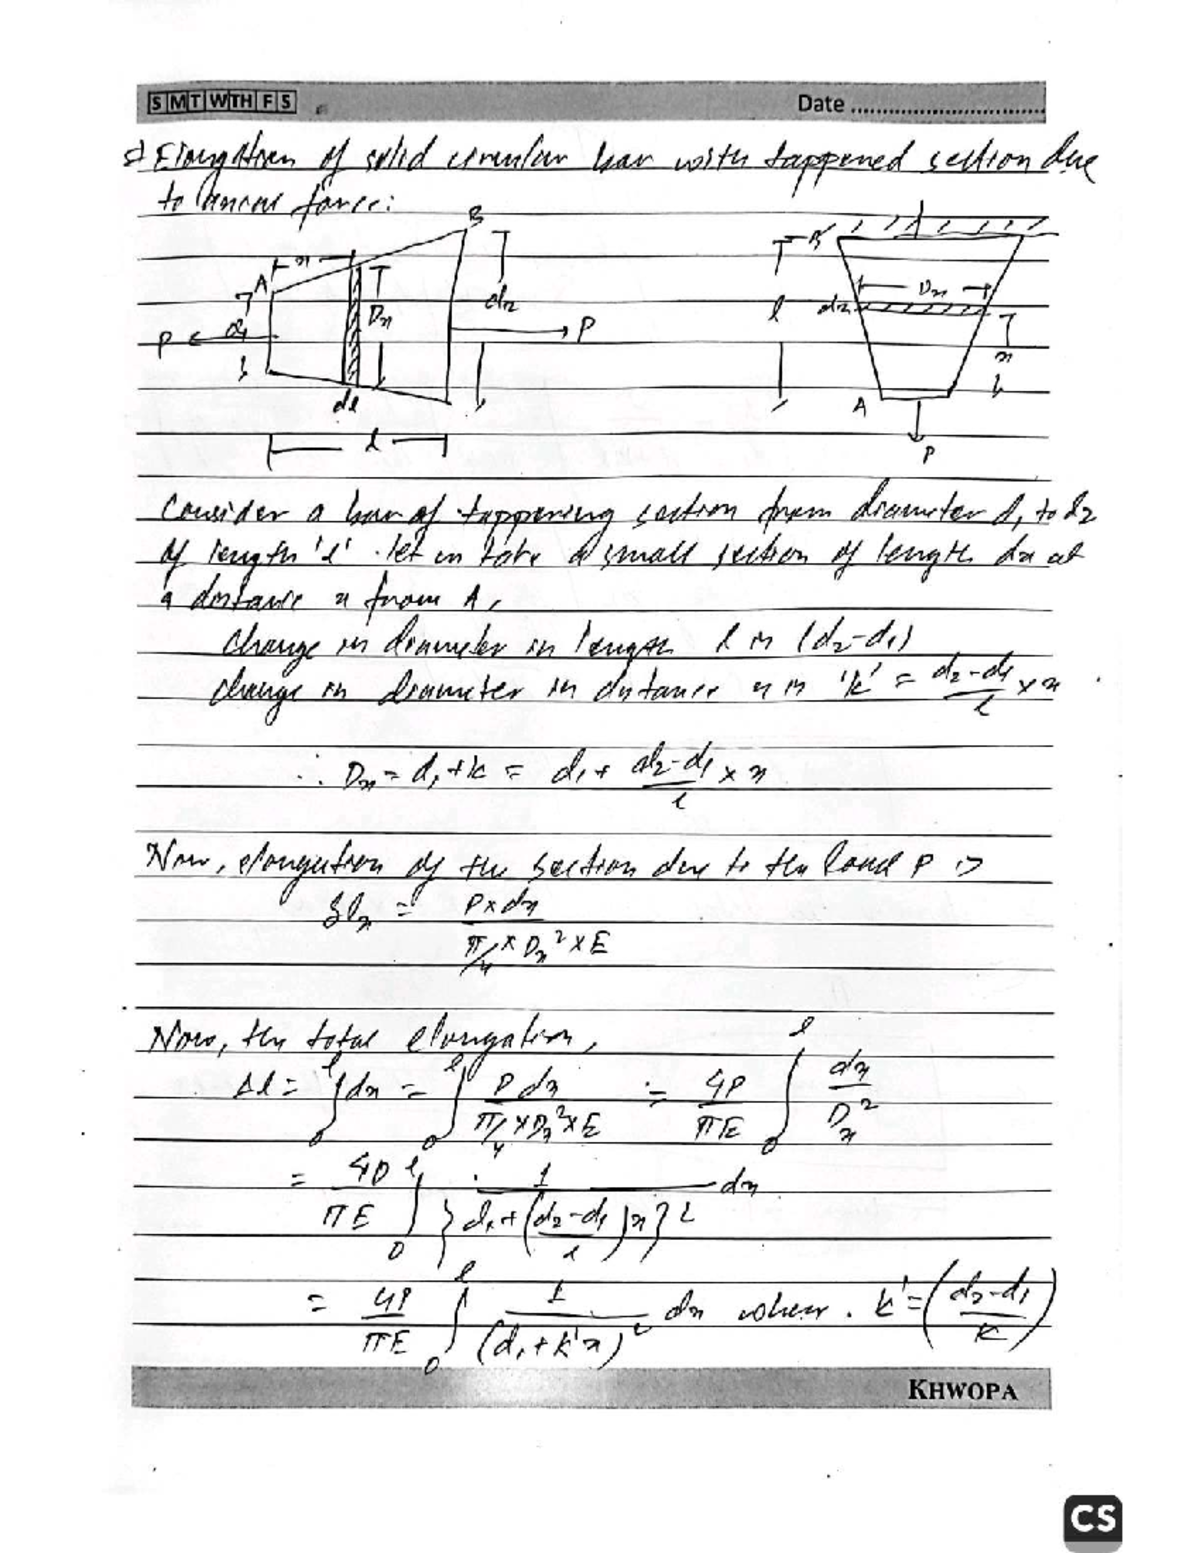 S M T W TH F S
Date ..............................
Elongation of solid circular bar with tappered section due
to axial force:
B
A
x
d1
Dx
d2
P
P
dl
l
B
l
dx
Dx
x
A
P
Consider a bar of tappering section from diameter d1 to d2
of length 'l'. let us take a small section of length dx at
a distance x from A,
Change in diameter in length l is (d2-d1)
change in diameter in distance x is 'k' = (d2-d1)/l × x
∴ Dx = d1+k = d1 + (d2-d1)/l × x
Now, elongation of the section due to the load P is
δlx = P×dx / (π/4 × Dx² × E)
Now, the total elongation,
Δl = ∫₀ˡ dx = ∫₀ˡ P dx / (π/4 × Dx² × E) = 4P/πE ∫₀ˡ dx/Dx²
= 4P/πE ∫₀ˡ 1/{d1+((d2-d1)/l)x}² dx
= 4P/πE ∫₀ˡ 1/(d1+k'x)² dx where. k' = ((d2-d1)/k)
KHWOPA
CS